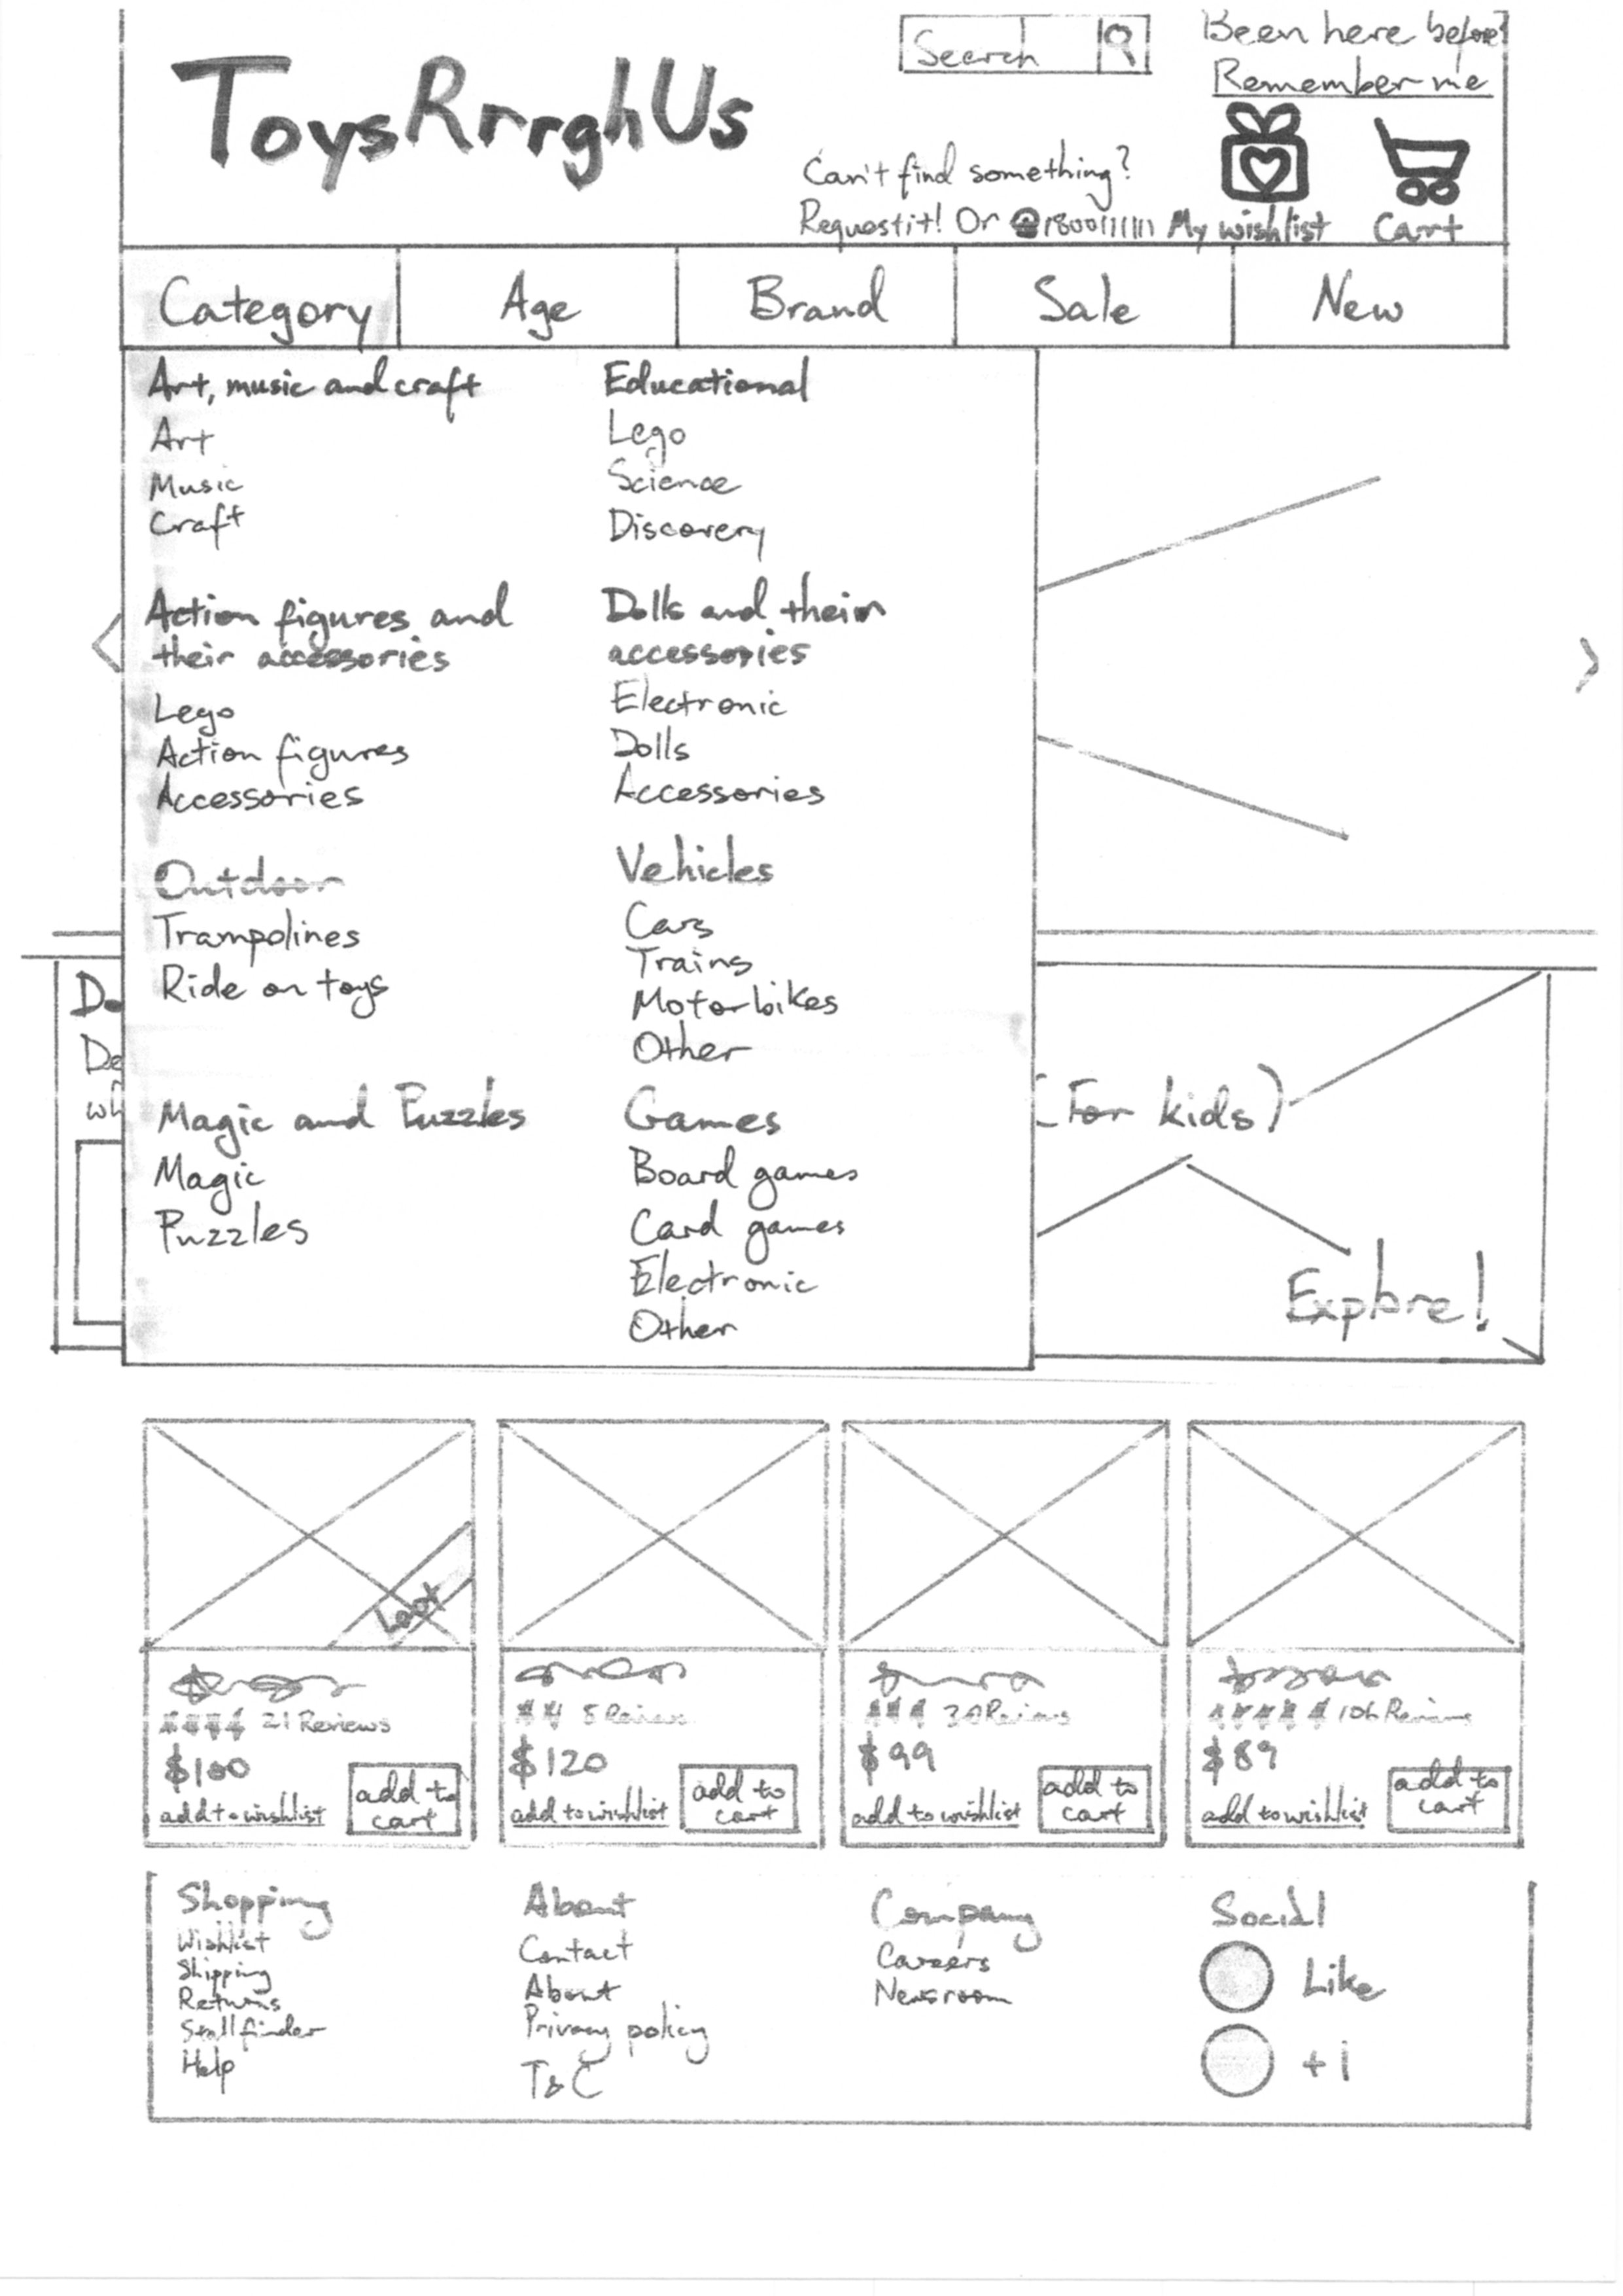 ToysRrrghUs
Search
Been here before?
Remember me
Can't find something?
Request it! Or ☎1800111111
My wishlist
Cart
Category
Age
Brand
Sale
New
Art, music and craft
Art
Music
Craft
Action figures and
their accessories
Lego
Action figures
Accessories
Outdoor
Trampolines
Ride on toys
Magic and Puzzles
Magic
Puzzles
Educational
Lego
Science
Discovery
Dolls and their
accessories
Electronic
Dolls
Accessories
Vehicles
Cars
Trains
Motorbikes
Other
Games
Board games
Card games
Electronic
Other
Do
De
wh
(For kids)
Explore!
21 Reviews
$100
add to wishlist
add to
cart
5 Reviews
$120
add to wishlist
add to
cart
30 Reviews
$99
add to wishlist
add to
cart
106 Reviews
$89
add to wishlist
add to
cart
Shopping
Wishlist
Shipping
Returns
Help
About
Contact
About
Privacy policy
T&C
Company
Careers
Newsroom
Social
Like
+1